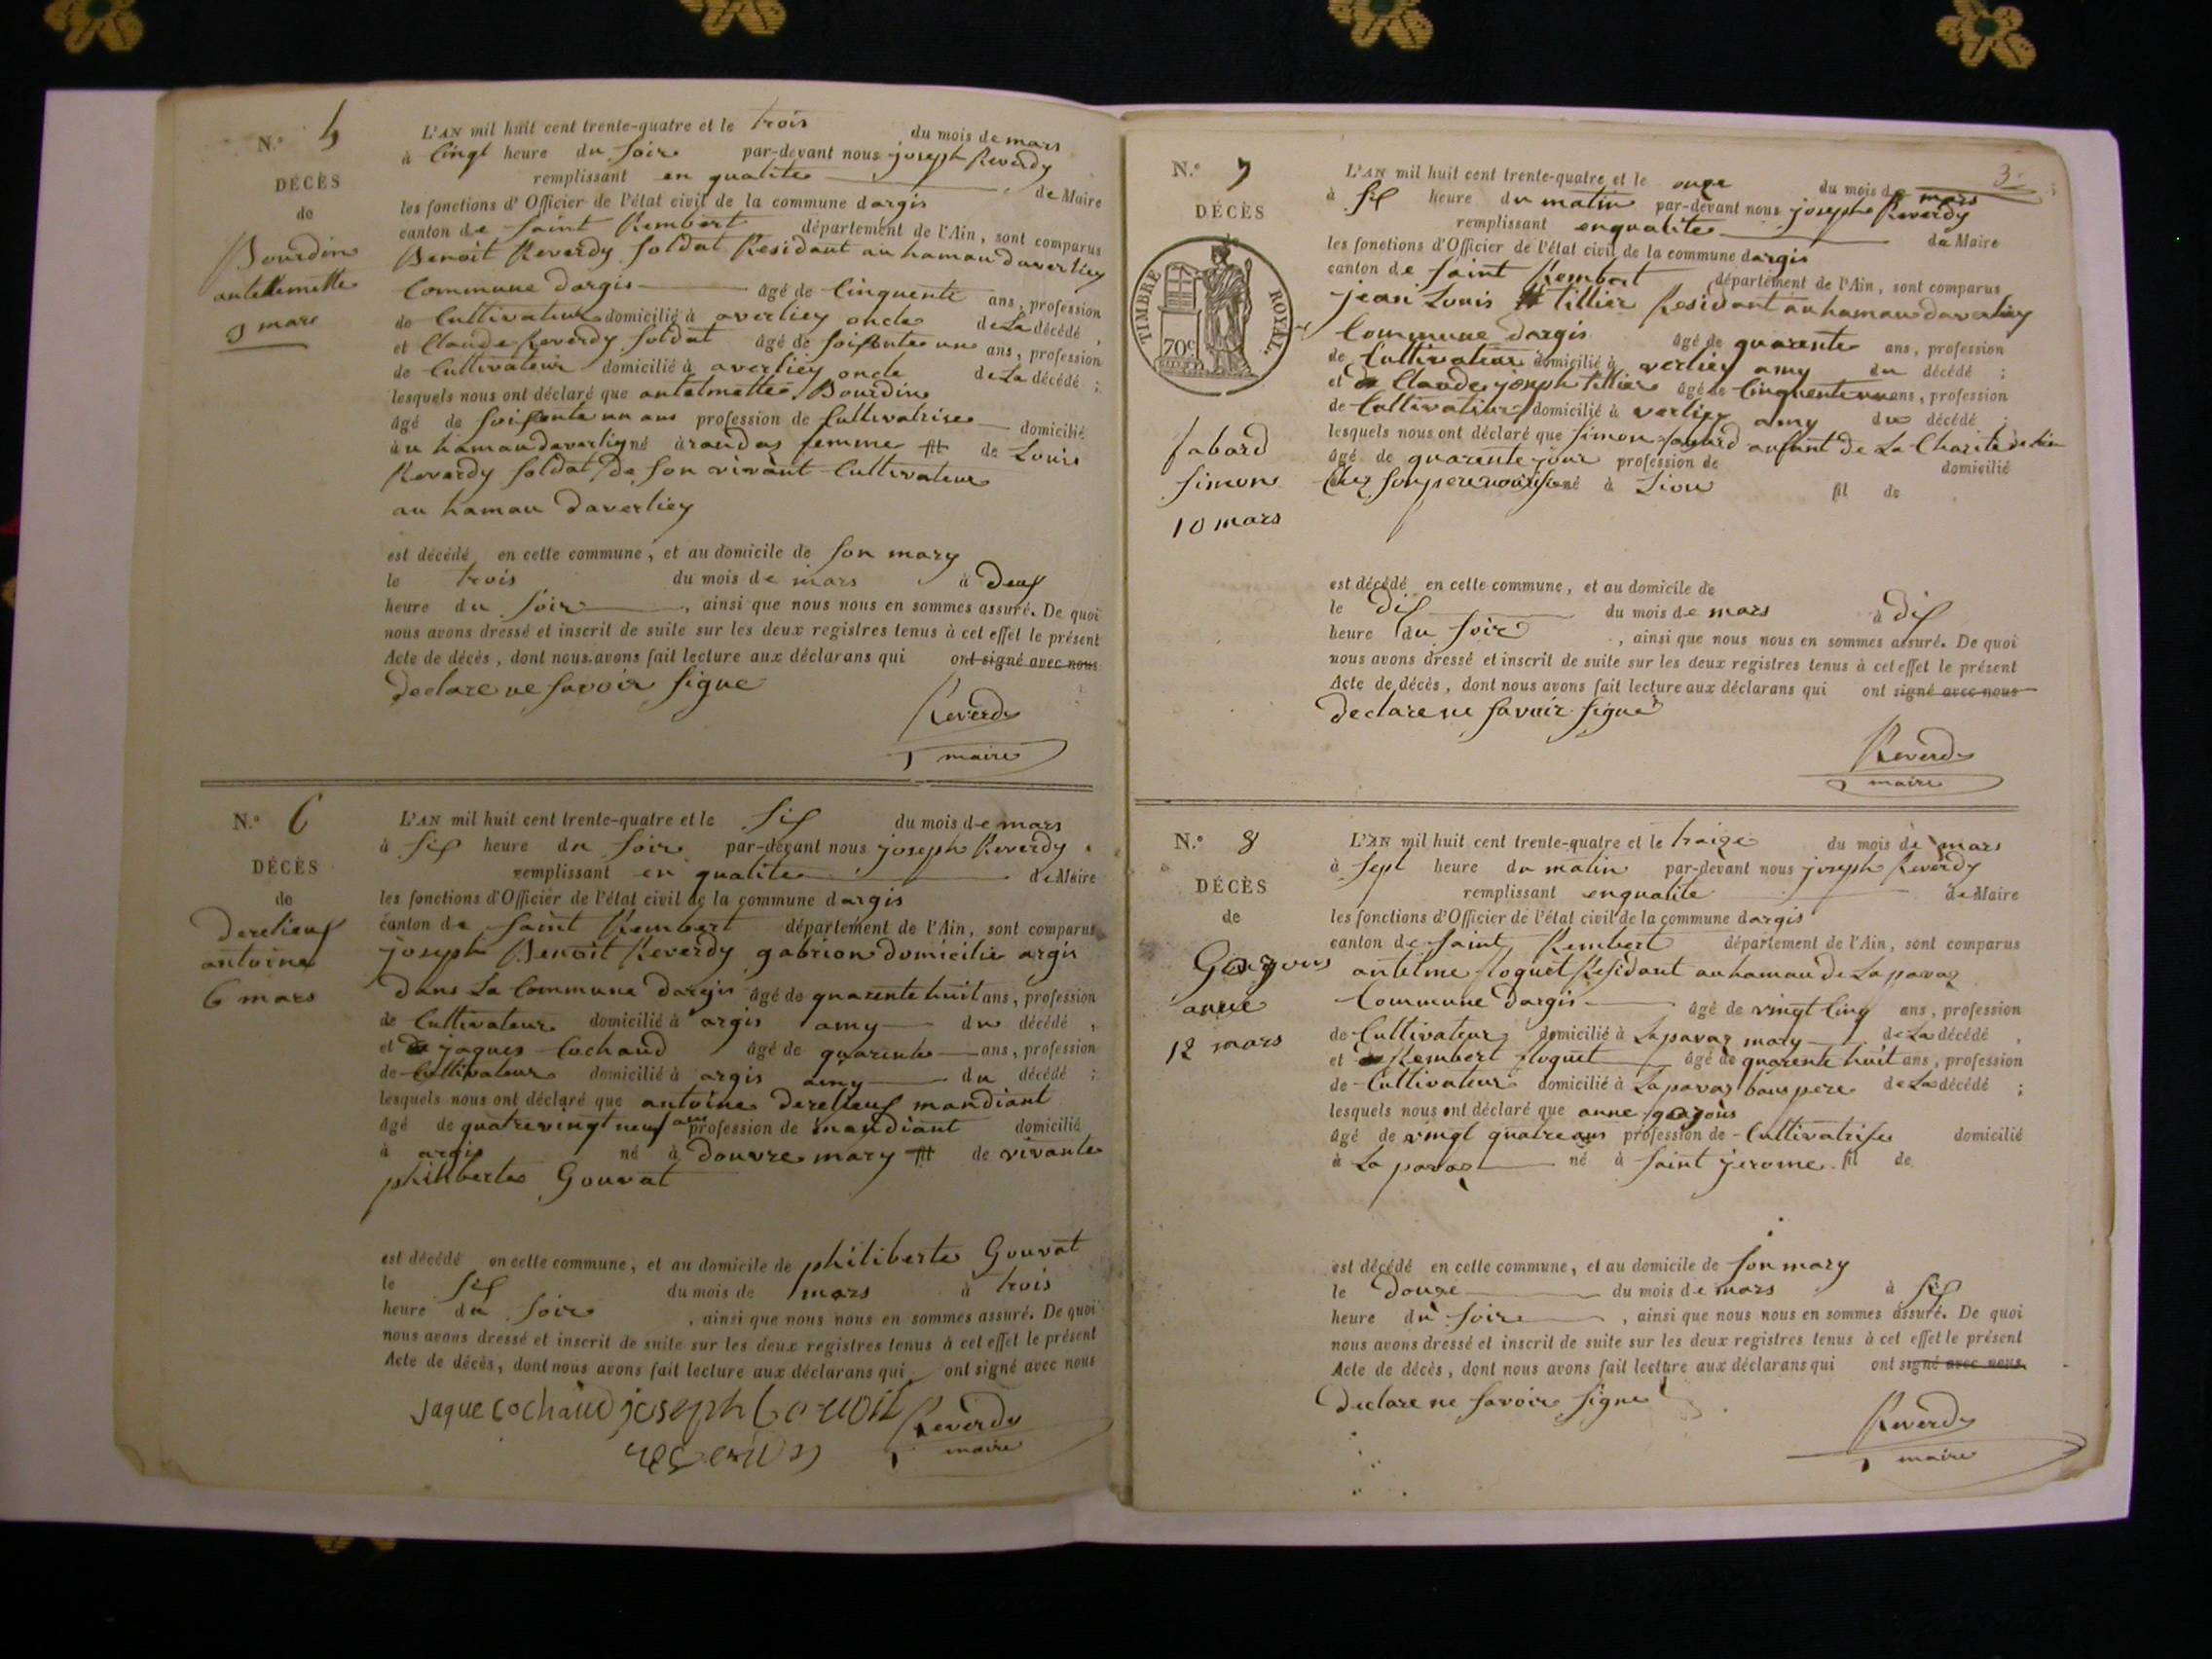 N.° 5
DÉCÈS
de
Bourdin
antelmette
3 mars
L'AN mil huit cent trente-quatre et le trois du mois de mars
à Cinqt heure du soir par-devant nous joseph Reverdy
remplissant en qualite de Maire
les fonctions d'Officier de l'état civil de la commune dargis
canton de saint Rembert département de l'Ain, sont comparus
Benoit Reverdy soldat Residant au hamau daverliey
Commune dargis âgé de Cinquente ans, profession
de Cultivateur domicilié à averliey oncle de La décédé,
et Claude Reverdy soldat âgé de soisente un ans, profession
de Cultivateur domicilié à averliey oncle de La décédé;
lesquels nous ont déclaré que antelmette Bourdin
âgé de soisente un ans profession de Cultivatrise domicilié
au hamau daverliey né à randas femme de Louis
Reverdy soldat de son vivant Cultivateur
au hamau daverliey
est décédé en cette commune, et au domicile de son mary
le trois du mois de mars à deux
heure du soir, ainsi que nous nous en sommes assuré. De quoi
nous avons dressé et inscrit de suite sur les deux registres tenus à cet effet le présent
Acte de décès, dont nous avons fait lecture aux déclarans qui ont signé avec nous
declare ne savoir signe
Reverdy
maire
N.° 6
DÉCÈS
de
Derelieux
antoine
6 mars
L'AN mil huit cent trente-quatre et le six du mois de mars
à six heure du soir par-devant nous joseph Reverdy
remplissant en qualite de Maire
les fonctions d'Officier de l'état civil de la commune dargis
canton de saint Rembert département de l'Ain, sont comparus
joseph Benoit Reverdy gabrion domicilié argis
dans La Commune dargis âgé de quarente huit ans, profession
de Cultivateur domicilié à argis amy du décédé,
et jaques Cochaud âgé de quarente ans, profession
de Cultivateur domicilié à argis amy du décédé;
lesquels nous ont déclaré que antoine derelieux mandiant
âgé de quatrevingt neuf ans profession de mandiant domicilié
à argis né à douvre mary de vivante
philiberte Gouvat
est décédé en cette commune, et au domicile de philiberte Gouvat
le six du mois de mars à trois
heure du soir, ainsi que nous nous en sommes assuré. De quoi
nous avons dressé et inscrit de suite sur les deux registres tenus à cet effet le présent
Acte de décès, dont nous avons fait lecture aux déclarans qui ont signé avec nous
jaque cochaud joseph benoit Reverdy
reverdy maire
N.° 7
DÉCÈS
de
TIMBRE ROYAL.
70c
fabard
simon
10 mars
3
L'AN mil huit cent trente-quatre et le onze du mois de mars
à six heure du matin par-devant nous joseph Reverdy
remplissant enqualite de Maire
les fonctions d'Officier de l'état civil de la commune dargis
canton de saint Rembert département de l'Ain, sont comparus
jean Louis tillier Residant au hamau daverliey
Commune dargis âgé de quarente ans, profession
de Cultivateur domicilié à verliey amy du décédé;
et Claude joseph tillier âgé de Cinquente un ans, profession
de Cultivateur domicilié à verliey amy du décédé;
lesquels nous ont déclaré que simon fabard anfant de La Charite de Lion
âgé de quarente jour profession de domicilié
Chez son pere nourisié né à Lion fil de
est décédé en cette commune, et au domicile de
le dix du mois de mars à dix
heure du soir, ainsi que nous nous en sommes assuré. De quoi
nous avons dressé et inscrit de suite sur les deux registres tenus à cet effet le présent
Acte de décès, dont nous avons fait lecture aux déclarans qui ont signé avec nous
declare ne savoir signé
Reverdy
maire
N.° 8
DÉCÈS
de
anne
12 mars
L'AN mil huit cent trente-quatre et le traize du mois de mars
à sept heure du matin par-devant nous joseph Reverdy
remplissant enqualite de Maire
les fonctions d'Officier de l'état civil de la commune dargis
canton de saint Rembert département de l'Ain, sont comparus
antelme floquet Residant au hamau de Lapavaz
Commune dargis âgé de vingt Cinq ans, profession
de Cultivateur domicilié à Lapavaz mary de La décédé,
et Rembert floquet âgé de quarente huit ans, profession
de Cultivateur domicilié à Lapavaz baupere de La décédé;
lesquels nous ont déclaré que anne
âgé de vingt quatre ans profession de Cultivatrise domicilié
à La pavaz né à saint jerome fil de
est décédé en cette commune, et au domicile de son mary
le douze du mois de mars à six
heure du soir, ainsi que nous nous en sommes assuré. De quoi
nous avons dressé et inscrit de suite sur les deux registres tenus à cet effet le présent
Acte de décès, dont nous avons fait lecture aux déclarans qui ont signé avec nous
declare ne savoir signé
Reverdy
maire